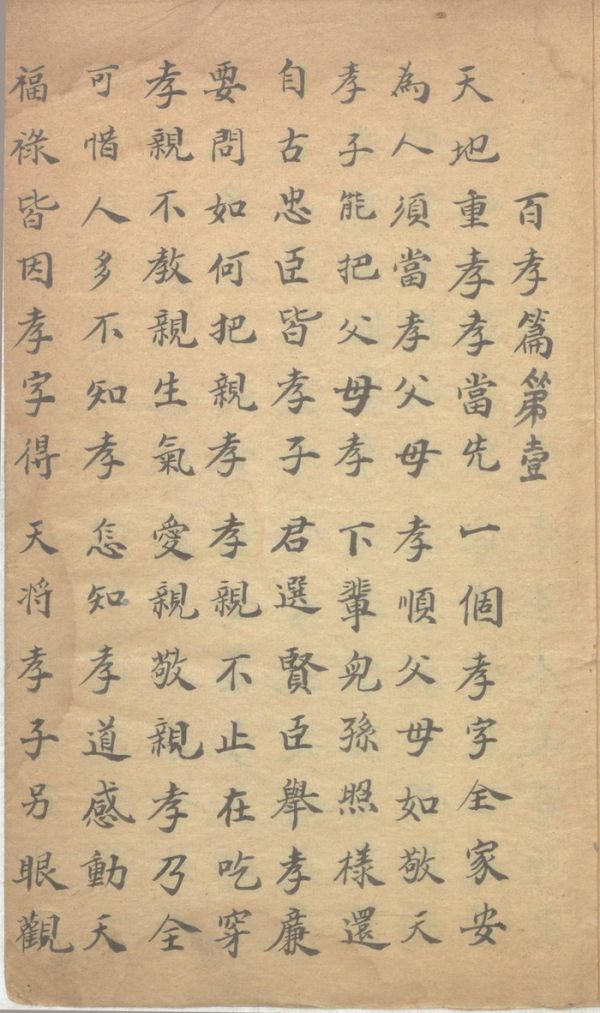 百孝篇第壹
天地重孝孝當先 一個孝字全家安
為人須當孝父母 孝順父母如敬天
孝子能把父母孝 下輩兒孫照樣還
自古忠臣皆孝子 君選賢臣舉孝廉
要問如何把親孝 孝親不止在吃穿
孝親不教親生氣 愛親敬親孝乃全
可惜人多不知孝 怎知孝道感動天
福祿皆因孝字得 天将孝子另眼觀